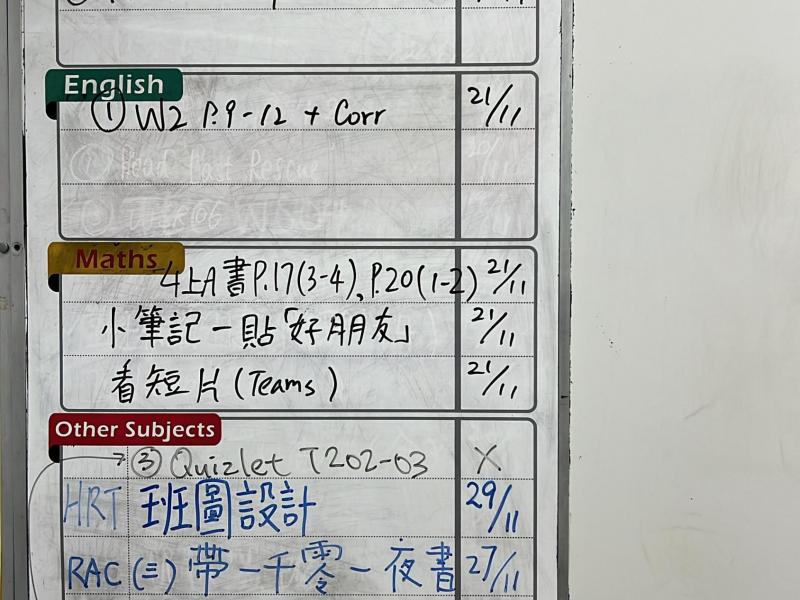 English
① W2 P.9-12 + Corr 21/11
Maths
4上A書P.17(3-4)、P.20(1-2) 21/11
小筆記一貼「好朋友」 21/11
看短片(Teams) 21/11
Other Subjects
③ Quizlet T202-03 X
HRT 班圖設計 29/11
RAC (三) 帶一千零一夜書 27/11